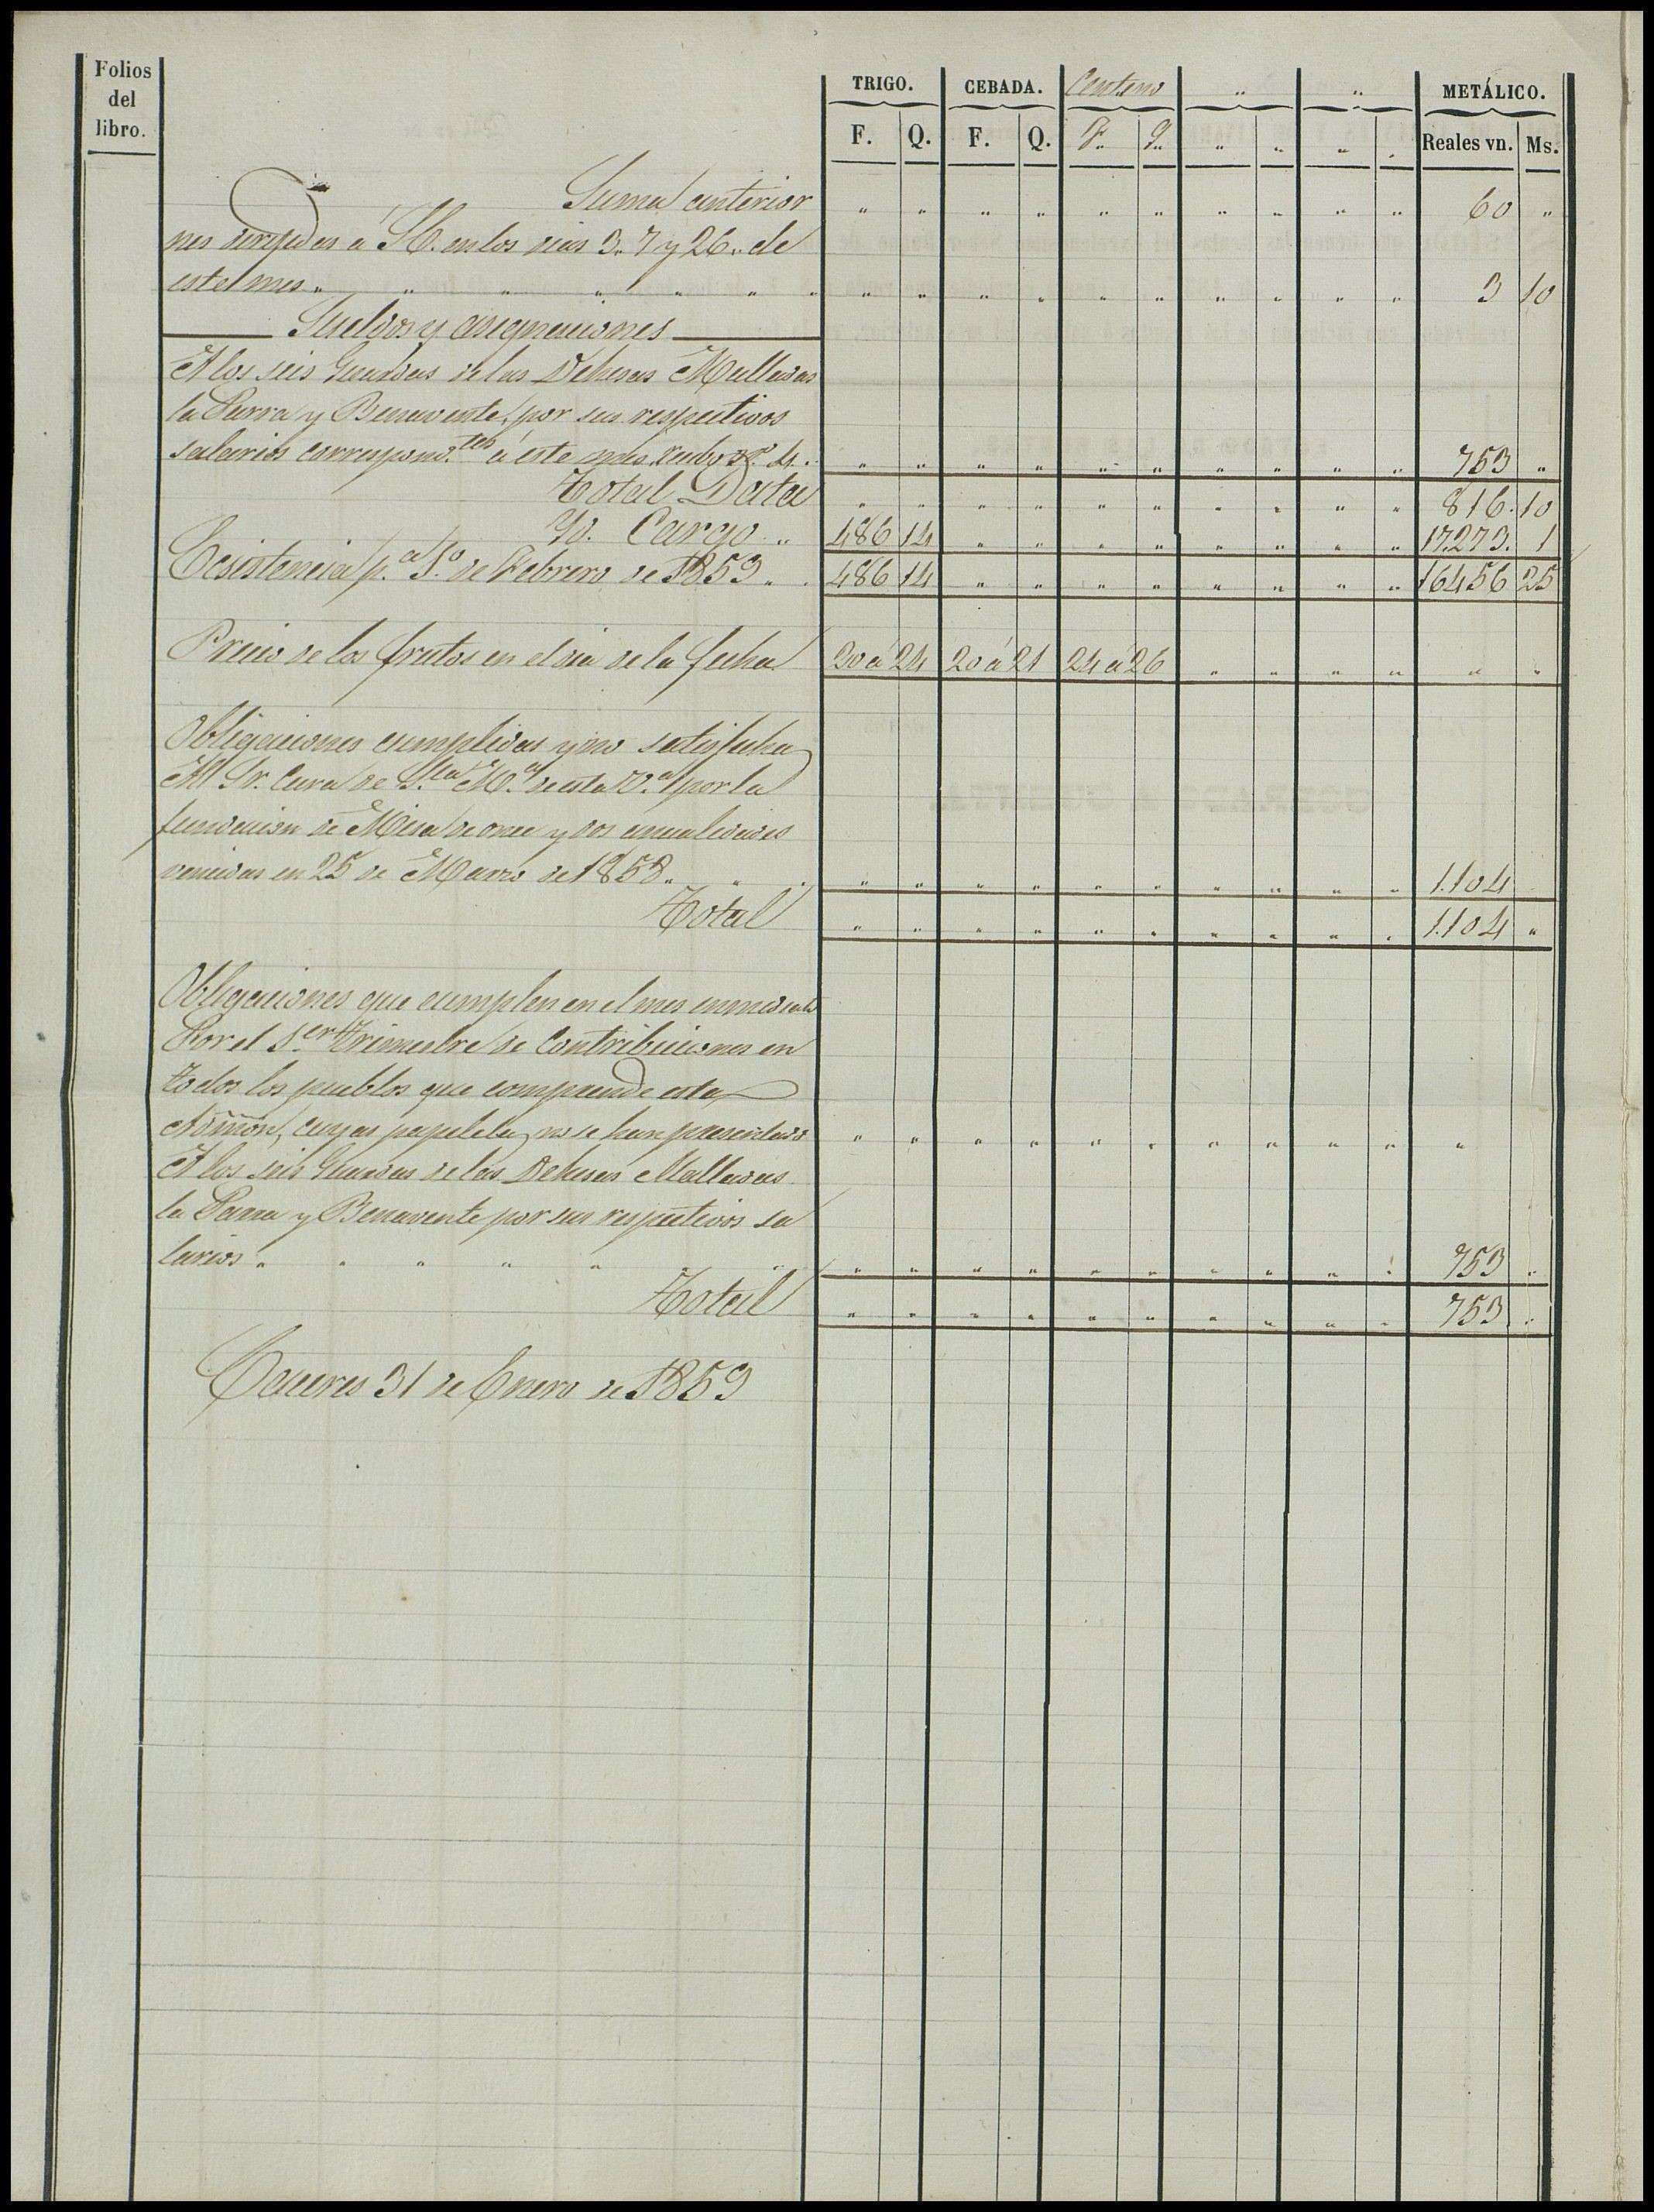 Folios del libro. TRIGO. CEBADA. Centeno " " METÁLICO.
F. Q. F. Q. F. Q. " " " " Reales vn. Ms.
Suma anterior " " " " " " " " " " 60 "
nes dirigidas á S.E. en los dias 3. 7 y 26 " de
este mes " " " " " " " " " " " " " " " " 3 10
Sueldos y asignaciones
A los seis Guardas de las Dehesas Malladas
la Parra y Benavente, por sus respectivos
salarios correspond.tes á este mes, recibo n.º 4. " " " " " " " " " " 753 "
Total Data " " " " " " " " " " 816. 10
Yd. Cargo " 486 14 " " " " " " " " 17.273. 1
Ecsistencia p.a 1.º de Febrero de 1859 " 486 14 " " " " " " " " 16456 25
Precio de los frutos en el dia de la fecha 30 á 24 20 á 21 24 á 26 " " " " " "
Obligaciones cumplidas y no satisfechas
Al Sr. Cura de S.ta M.a de esta V.a por la
fundacion de Misa de once y dos anualidades
vencidas en 25 de Marzo de 1858 " " " " " " " " " " " " 1.104
Total " " " " " " " " " " 1.104 "
Obligaciones que cumplen en el mes inmediato
Por el 1.er Trimestre de Contribuciones en
todos los pueblos que comprende esta
Admon, cuyas papeletas no se han presentado " " " " " " " " " " "
A los seis Guardas de las Dehesas Malladas
la Parra y Benavente por sus respectivos sa
larios " " " " " " " " " " " " " " " " 753 "
Total " " " " " " " " " " 753 "
Caceres 31 de Enero de 1859